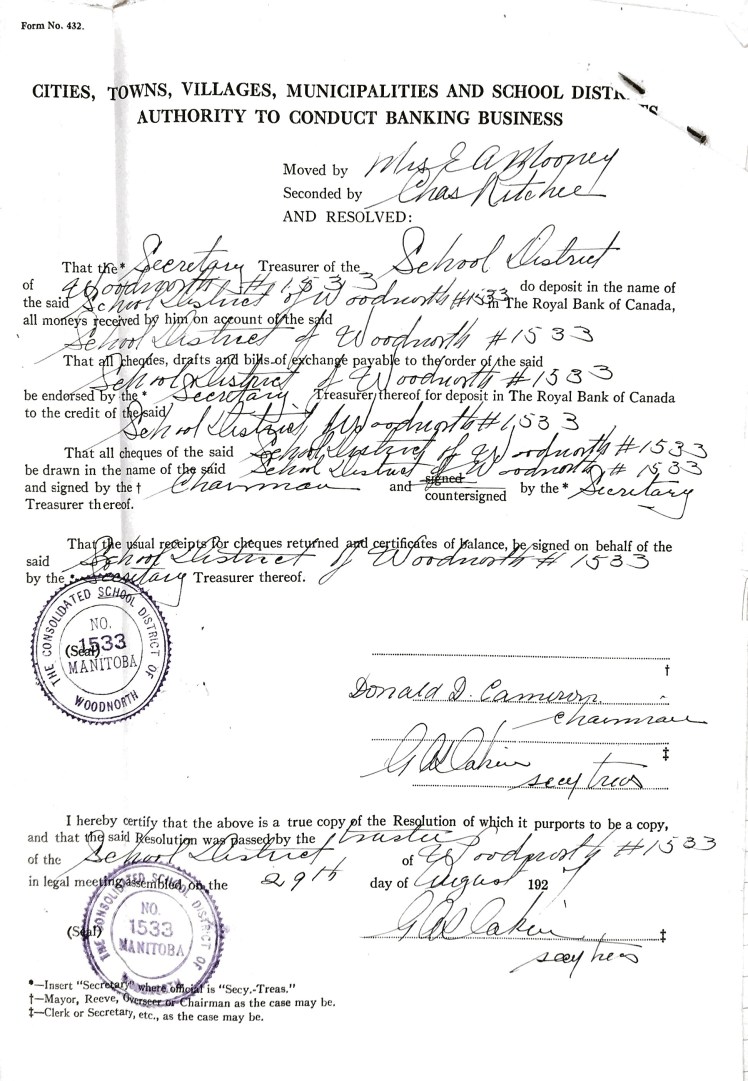 Form No. 432.
CITIES, TOWNS, VILLAGES, MUNICIPALITIES AND SCHOOL
AUTHORITY TO CONDUCT BANKING BUSINESS
Moved by Mrs E A Mooney
Seconded by Chas Ritchie
AND RESOLVED:
That the* Secretary Treasurer of the School District
of Woodnorth # 1533 do deposit in the name of
the said School District of Woodnorth #1533 in The Royal Bank of Canada,
all moneys received by him on account of the said
School District of Woodnorth # 1533
That all cheques, drafts and bills of exchange payable to the order of the said
School District of Woodnorth # 1533
be endorsed by the* Secretary Treasurer thereof for deposit in The Royal Bank of Canada
to the credit of the said
School District of Woodnorth # 1533
That all cheques of the said School District of Woodnorth # 1533
be drawn in the name of the said School District of Woodnorth # 1533
and signed by the † Chairman and signed countersigned by the * Secretary
Treasurer thereof.
That the usual receipts for cheques returned and certificates of balance, be signed on behalf of the
said School District of Woodnorth # 1533
by the * Secretary Treasurer thereof.
THE CONSOLIDATED SCHOOL DISTRICT OF
NO.
(Seal) 1533
MANITOBA
WOODNORTH
†
Donald D. Cameron
chairman
‡
secy treas
I hereby certify that the above is a true copy of the Resolution of which it purports to be a copy,
and that the said Resolution was passed by the trustee
of the School District of Woodnorth # 1533
in legal meeting assembled on the 29th day of August 1927
THE CONSOLIDATED SCHOOL DISTRICT OF
NO.
(Seal) 1533
MANITOBA
‡
secy treas
*—Insert "Secretary" where official is "Secy.-Treas."
†—Mayor, Reeve, Overseer or Chairman as the case may be.
‡—Clerk or Secretary, etc., as the case may be.